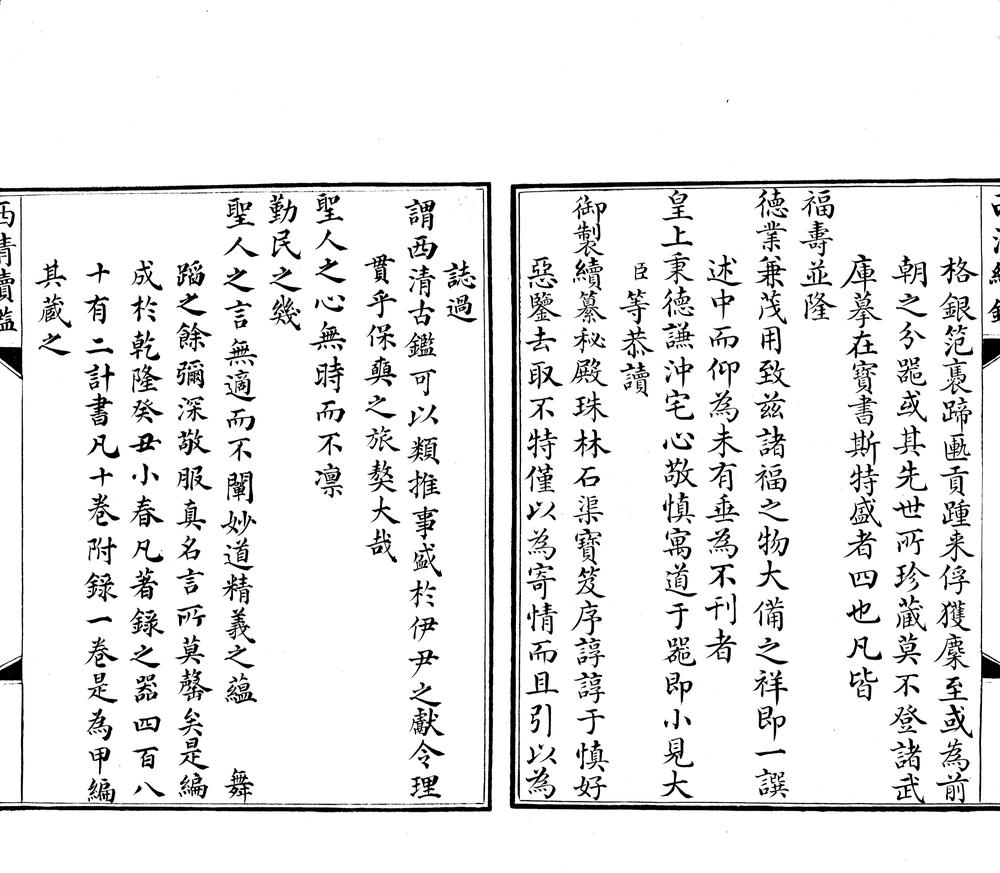 格銀笵褭蹏匭貢踵来俘獲麋至或為前
朝之分噐或其先世所珍藏莫不登諸武
庫摹在寳書斯特盛者四也凡皆
福壽並隆
德業兼茂用致兹諸福之物大備之祥即一譔
述中而仰為未有垂為不刊者
皇上秉德謙沖宅心敬慎寓道于噐即小見大
臣等恭讀
御製續纂秘殿珠林石渠寳笈序諄諄于慎好
惡鑒去取不特僅以為寄情而且引以為
誌過
謂西清古鑑可以類推事盛於伊尹之獻令理
貫乎保奭之旅獒大哉
聖人之心無時而不凛
勤民之幾
聖人之言無適而不闡妙道精義之蘊 舞
蹈之餘彌深敬服真名言所莫罄矣是編
成於乾隆癸丑小春凡著錄之器四百八
十有二計書凡十卷附錄一卷是為甲編
其藏之
西清續鑑